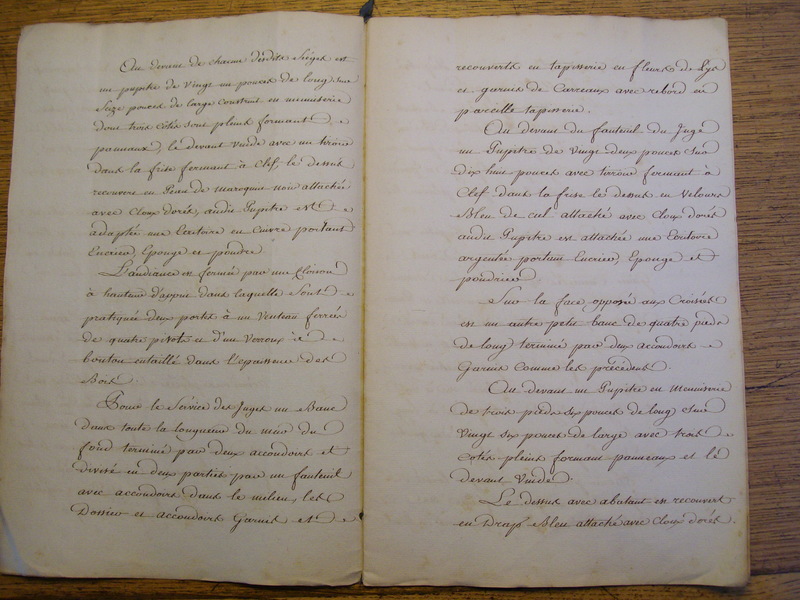 Au devant de chacun desdits Siéges est
un pupitre de vingt un pouces de long sur
Seize pouces de large construit en menuiserie
dont trois côtés sont pleins formant
panneaux, le devant vuide avec un tiroir
dans la frise fermant à Clef, le dessus
recouvert en Peau de maroquin noir attachée
avec cloux dorés, audit Pupitre est
adaptée une Ecritoire en Cuivre portant
Encrier, Eponge et poudre
L'audiance est fermée par une Cloison
à hauteur d'appui dans laquelle Sont
pratiquée deux portes à un Venteau ferrées
de quatre pivots et d'un Verroux à
bouton entaillé dans l'epaisseur des
Bois.
Pour le Service des Juges un Banc
dans toute la longueur du mur du
fond terminé par deux accoudoirs et
divisé en deux parties par un fauteuil
avec accoudoirs dans le milieu, les
Dossier et accoudoirs Garnis et
recouverts en tapisserie en fleurs de Lys
et garnis de Carreaux avec rebord en
pareille tapisserie.
Au devant du fauteuil du Juge
un Pupitre de vingt deux pouces sur
dix huit pouces avec tiroir fermant à
Clef dans la frise le dessus en Velours
Bleu de ciel attaché avec cloux dorés
audit Pupitre est attachée une Ecritoire
argentée portant Encrier, Eponge et
poudrier.
Sur la face opposée aux Croisées
est un autre petit banc de quatre pieds
de long terminé par deux accoudoirs
Garnis comme les précédents.
Au devant un Pupitre en menuiserie
de trois pieds six pouces de long sur
vingt six pouces de large avec trois
cotés pleins formant panneaux et le
devant Vuide.
Le dessus avec abatant est recouvert
en Drap Bleu attaché avec cloux dorés.